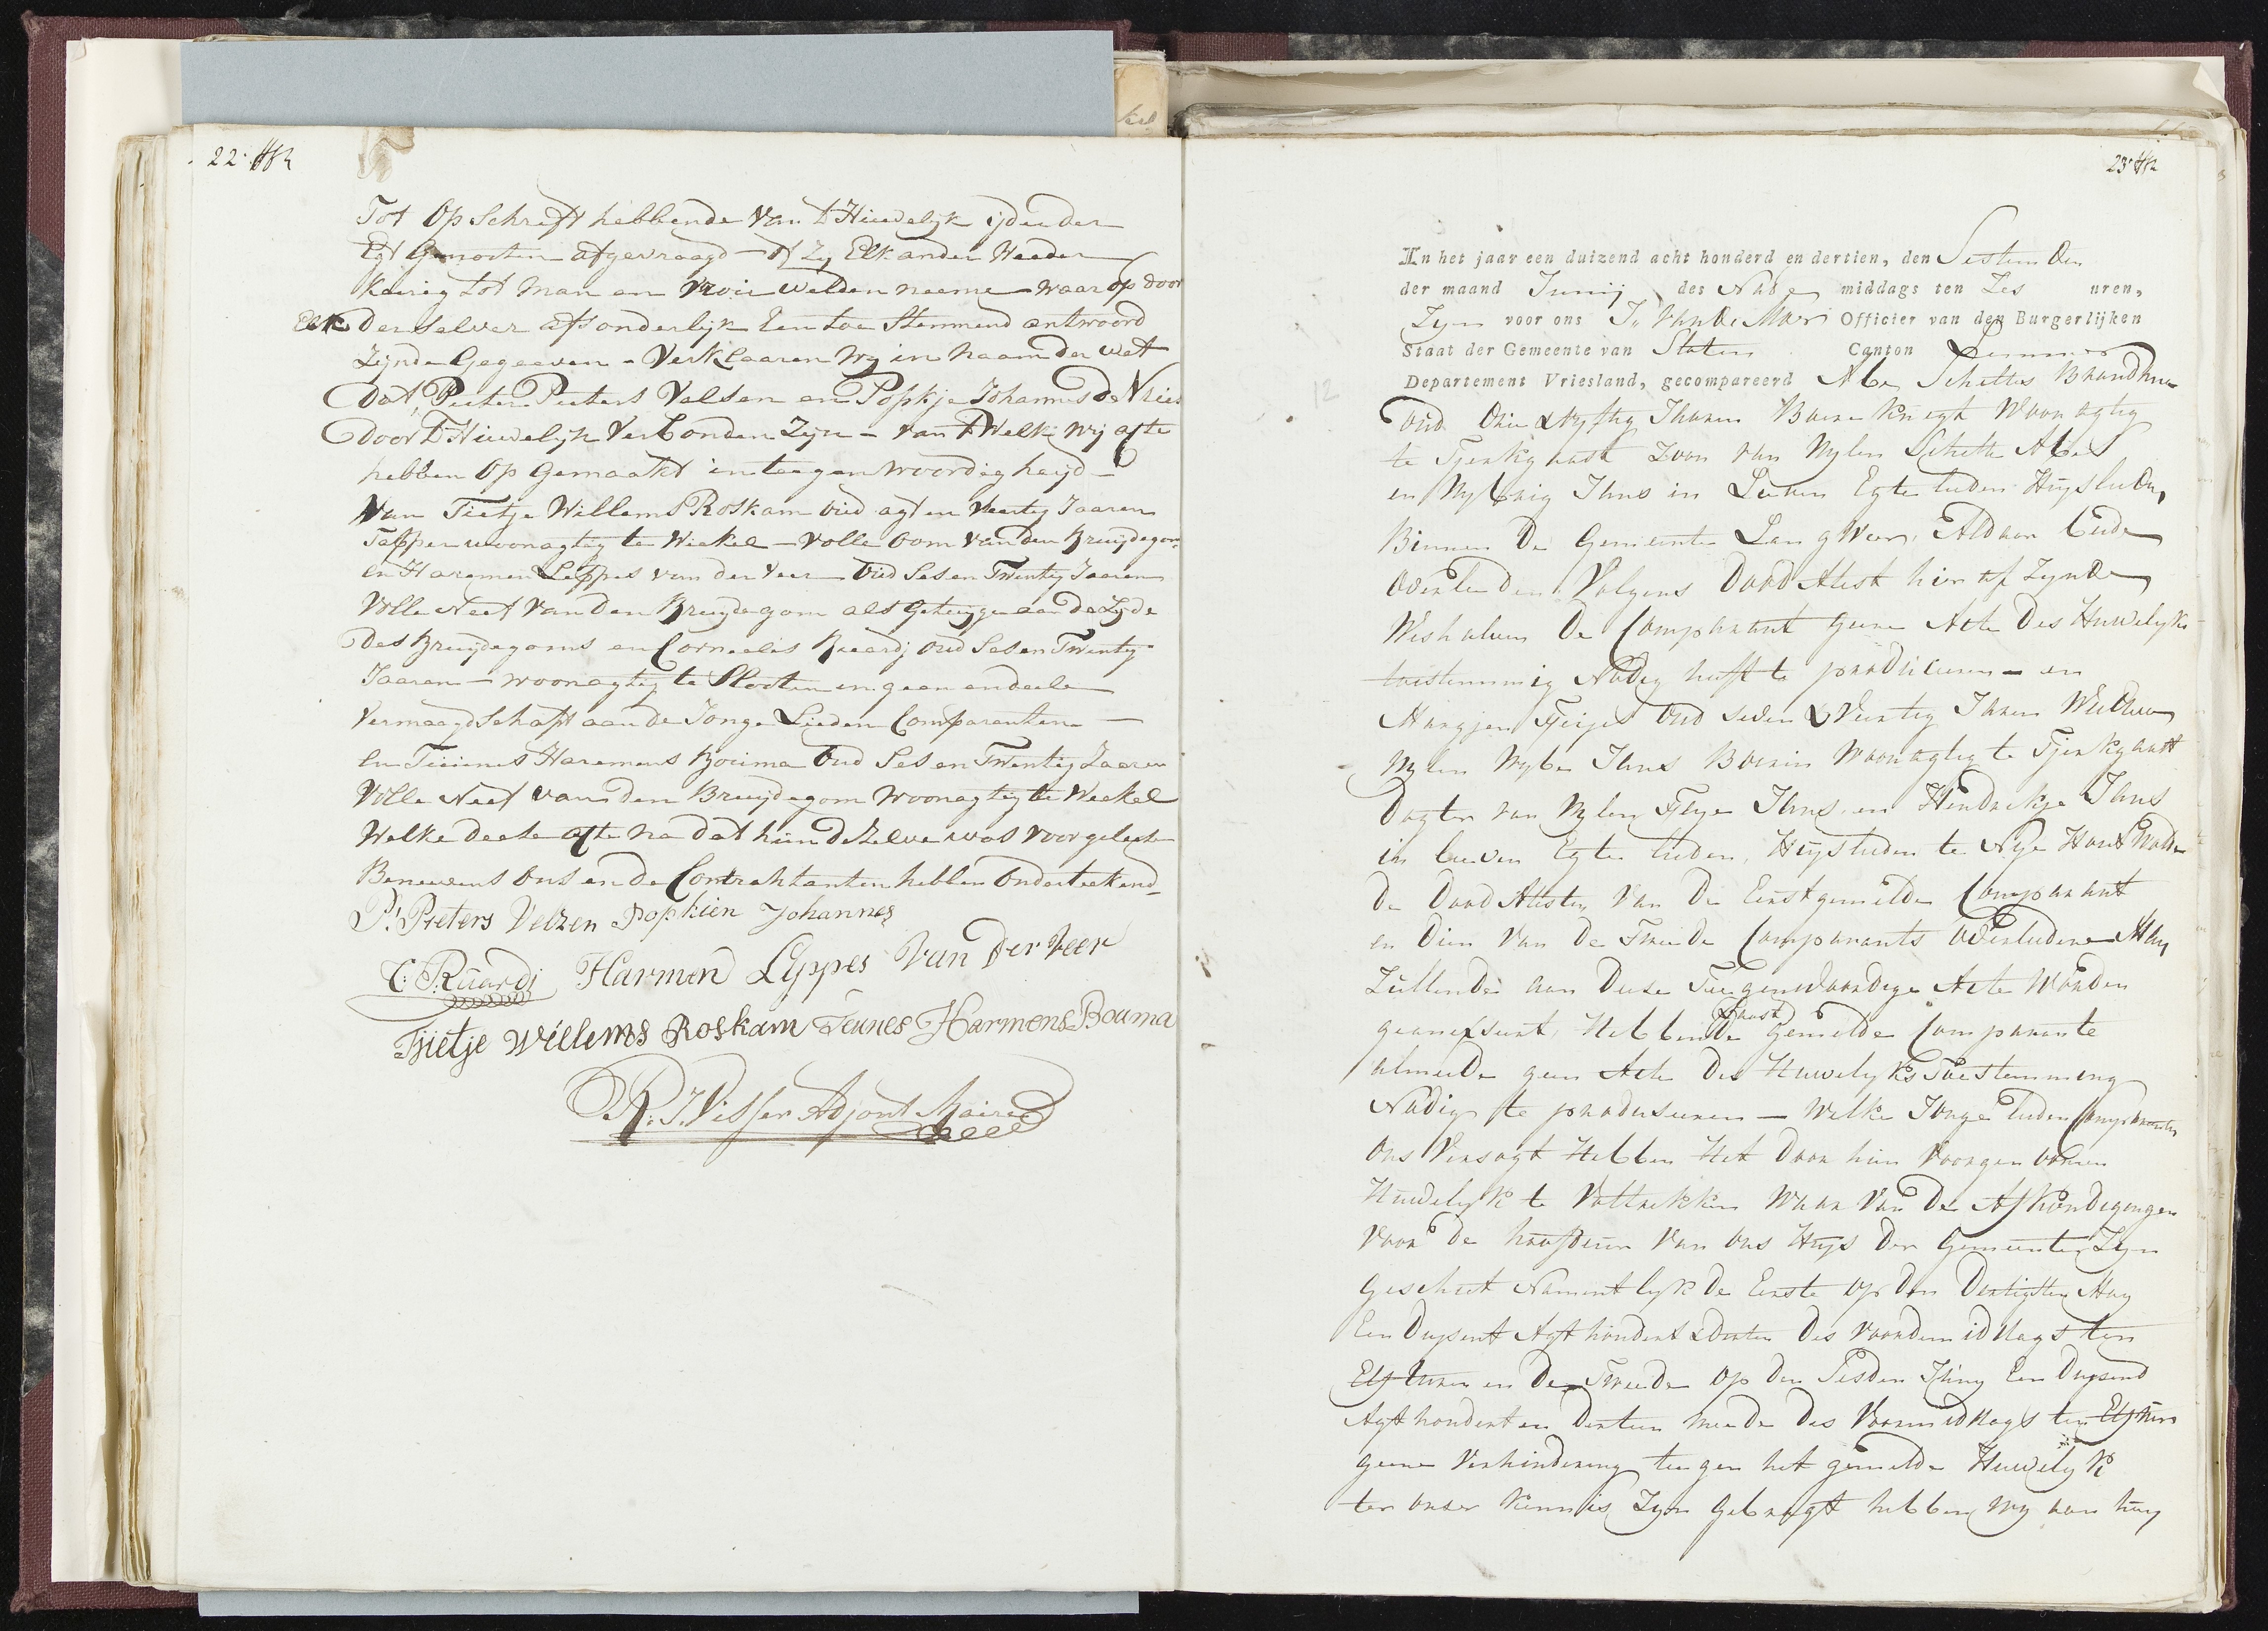 22
Tot Opschrift hebbende van 't Hüwelyk ijder der
Egt Genooten afgevraagd - of Zy Elkander Weeder
keürig tot man en Vroü wilden neeme - waar op door
Elk Der selver afsonderlijk Een toe Stemmend antwoord
Zijnde Gegeeven - Verklaaren Wy in naam der wet
Dat Pieter Pieters Velsen en Popkje Johannes De Vries
Door 't Hüwelijk Verbonden Zijn - van 't Welk Wij acte
hebben Op Gemaakt in teegenwoordigheijd -
Van Tietje Willems Roskam oüd agt en Veertig Jaaren
Tapper woonagtig te Wiekel - Volle Oom van den Bruijdegom
en Haremen Leppes van der Veer Oüd Ses en Twentig Jaaren
Volle Neef van den Bruijdegom als Getuijge aan de Zijde
des Bruijdegoms en Cornelis Rüardij oud Ses en Twentig
Jaaren - woonagtig te Slooten en geen endeele
Vermaagdschaft aan de Jonge Lieden Comparanten -
en Teünes Haremens Boüma Oud Ses en Twentig Jaaren
Volle Neef van den Bruijdegom Woonagtig te Weekel
Welke deese acte na dat hün deZelve was voorgeleesen
Beneevens Ons en de Contrahtanten hebben Onderteekend
Pr. Pieters Velzen Popkien Johannes
C: Rüardij Harmen Lyppes Van Der Veer
Tjietje Willems Roskam Teunes Harmens Bouma
R. J. Visser Adjont Maire
23
In het jaar een duizend acht honderd en dertien, den Sestienden
der maand Junij des Nade middags ten Zes uren,
Zijn voor ons J. van de Meer Officier van den Burgerlijken
Staat der Gemeente van Sloten Canton Lemmer
Departement Vriesland, gecompareerd Abe Scheltes Brandsma
Oud Drie & vyftig Jharen Boere knegt Woonagtig
te Tjerkgaast Zoon van Wylen Schelte Abes
en Wybrig Jhns in Leeven Egte lieden Huyslieden
Binnen De Gemeente Langweer, Aldaar beide
Overleeden Volgens Dood Attest hier af Zynde
Weshalven De Comparant geene Acte Des Huwelyks
toestemming Nodig heeft te produceren - en
Mangjen Feijes Oud Seven & Veertig Jharen Weduwe
Wylen Wybe Jhns Boerin Woonagtig te Tjerkgaast
Dogter van Wylen Feye Jhns en Hendrikje Jhns
in leeven Egte lieden Huyslieden te Nye Hant Wolde
De Dood Attesten Van De Eerstgemelde Comparant
en Dien Van De Tweede Comparants Overledene Man
Züllende aan Deese Teegenwoordige Acte Worden
geannexeert, Hebbende Laast Gemelde Comparante
almeede geen Acte Des Huwelyks Toestemming
Nodig te produseeren - Welke Jonge lieden Comparanten
Ons Versogt Hebben Het Door hün Voorgenoomen
Hüwelyk te Voltrekken Waar Van De Afkondigingen
Voor De hoofdeür Van Ons Huys Der Gemeente Zyn
Geschiet Namentlyk De Eerste Op Den Dertigsten May
Een Duysent Agt hondert & Dertien Des Voordemiddags ten
Elf Uuren en De Tweede Op Den Sesden Jüny Een Duysend
Agt hondert en Dertien meede Des Voormiddags ten Elf Uüren
geene Verhindering teegen het gemelde Huwelyk
ter onser Kennis Zyn Gebragt hebben wy aan hün